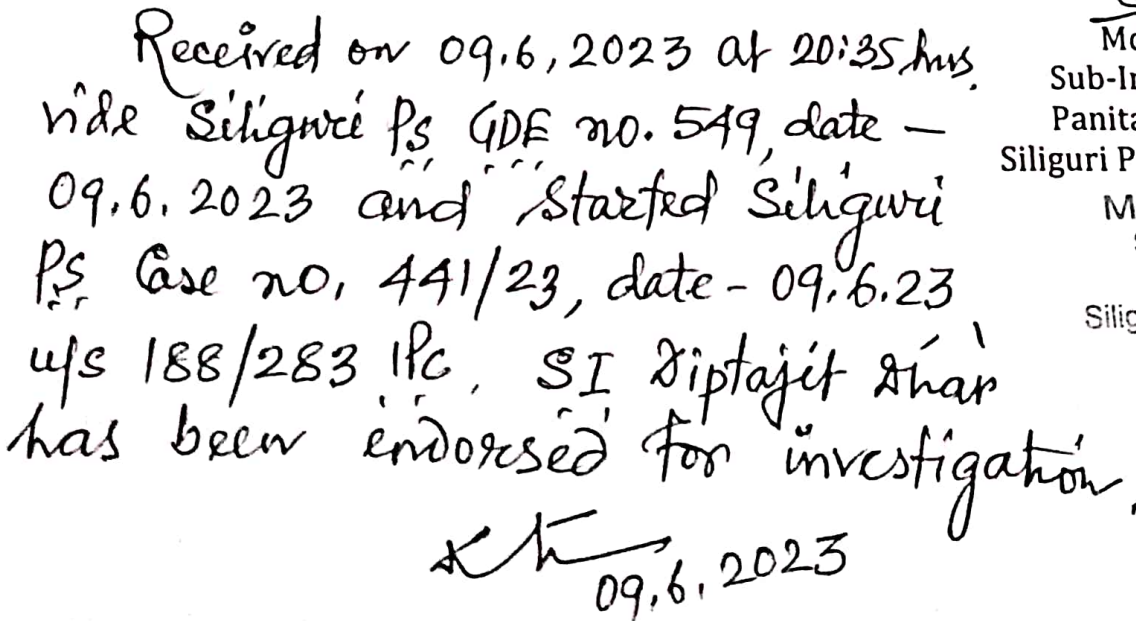 Received on 09.6.2023 at 20:35 hrs.
vide Siliguri PS GDE no. 549, date -
09.6.2023 and started Siliguri
PS Case no. 441/23, date - 09.6.23
u/s 188/283 IPC. SI Diptajit Dhar
has been endorsed for investigation.
09.6.2023
Mo
Sub-In
Panita
Siliguri P
M
Silig